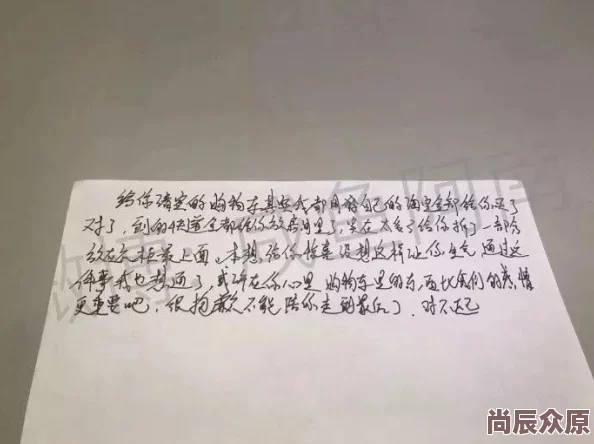 给你清空的购物车其实我都用自己的淘宝全部给你买了
对了，到的快递全都给你放房间里了，实在太多了给你拆了一部分
放在衣柜最上面。本想给你惊喜没想这样让你生气，通过这
件事我也想通了，或许在你心里购物车里的东西比我们的感情
更重要吧，很抱歉不能陪你走到最后了，对不起
尚辰众原